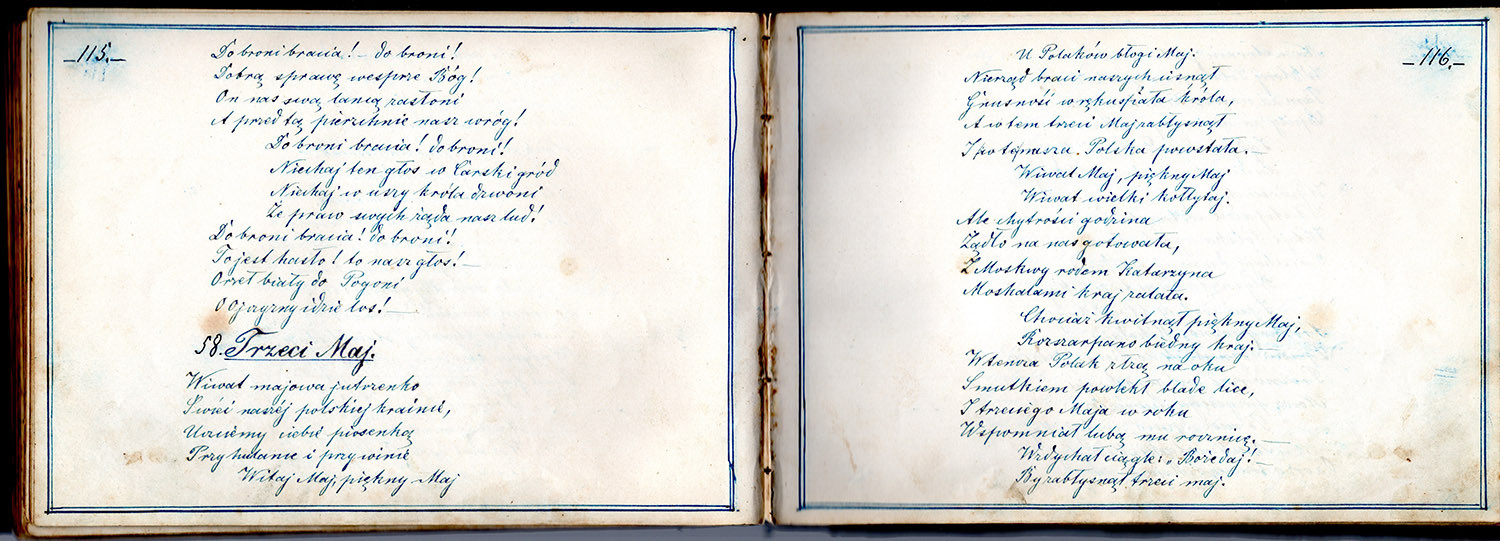 _115._
Do broni bracia! — do broni!
Dobrą sprawę wesprze Bóg!
On nas swą tarczą zasłoni
A przed tą pierzchnie nasz wróg!
Do broni bracia! do broni!
Niechaj ten głos w Carski gród
Niechaj w uszy króla dzwoni
Że praw swych żąda nasz lud!
Do broni bracia! do broni!
To jest hasło! to nasz głos! —
Orzeł biały do Pogoni
O Ojczyzny idzie los! —
58. Trzeci Maj.
Wiwat majowa jutrzenko
Świeć naszéj polskiej krainie,
Uczciemy ciebie piosenką
Przy hulance i przy winie
Witaj Maj, piękny Maj
_116._
U Polaków błogi Maj.
Nierząd braci naszych cisnął
Gnuśność w ręku spiała króla,
A w tem trzeci Maj zabłysnął
I nasza Polska powstała. —
Wiwat Maj, piękny Maj
Wiwat wielki Kołłątaj.
Ale chytrości godzina
Żądło na nas gotowała,
Z Moskwy rodem Katarzyna
Moskalami kraj zalała.
Chociaż kwitnął piękny Maj,
Rozszarpano biedny kraj. —
Wtencza Polak z łzą na oku
Smutkiem powlekł blade lice,
I trzeciego Maja w roku
Wspominał lubą mu rocznicę. —
Wzdychał ciągle: „Boże daj! —
By zabłysnął trzeci maj.